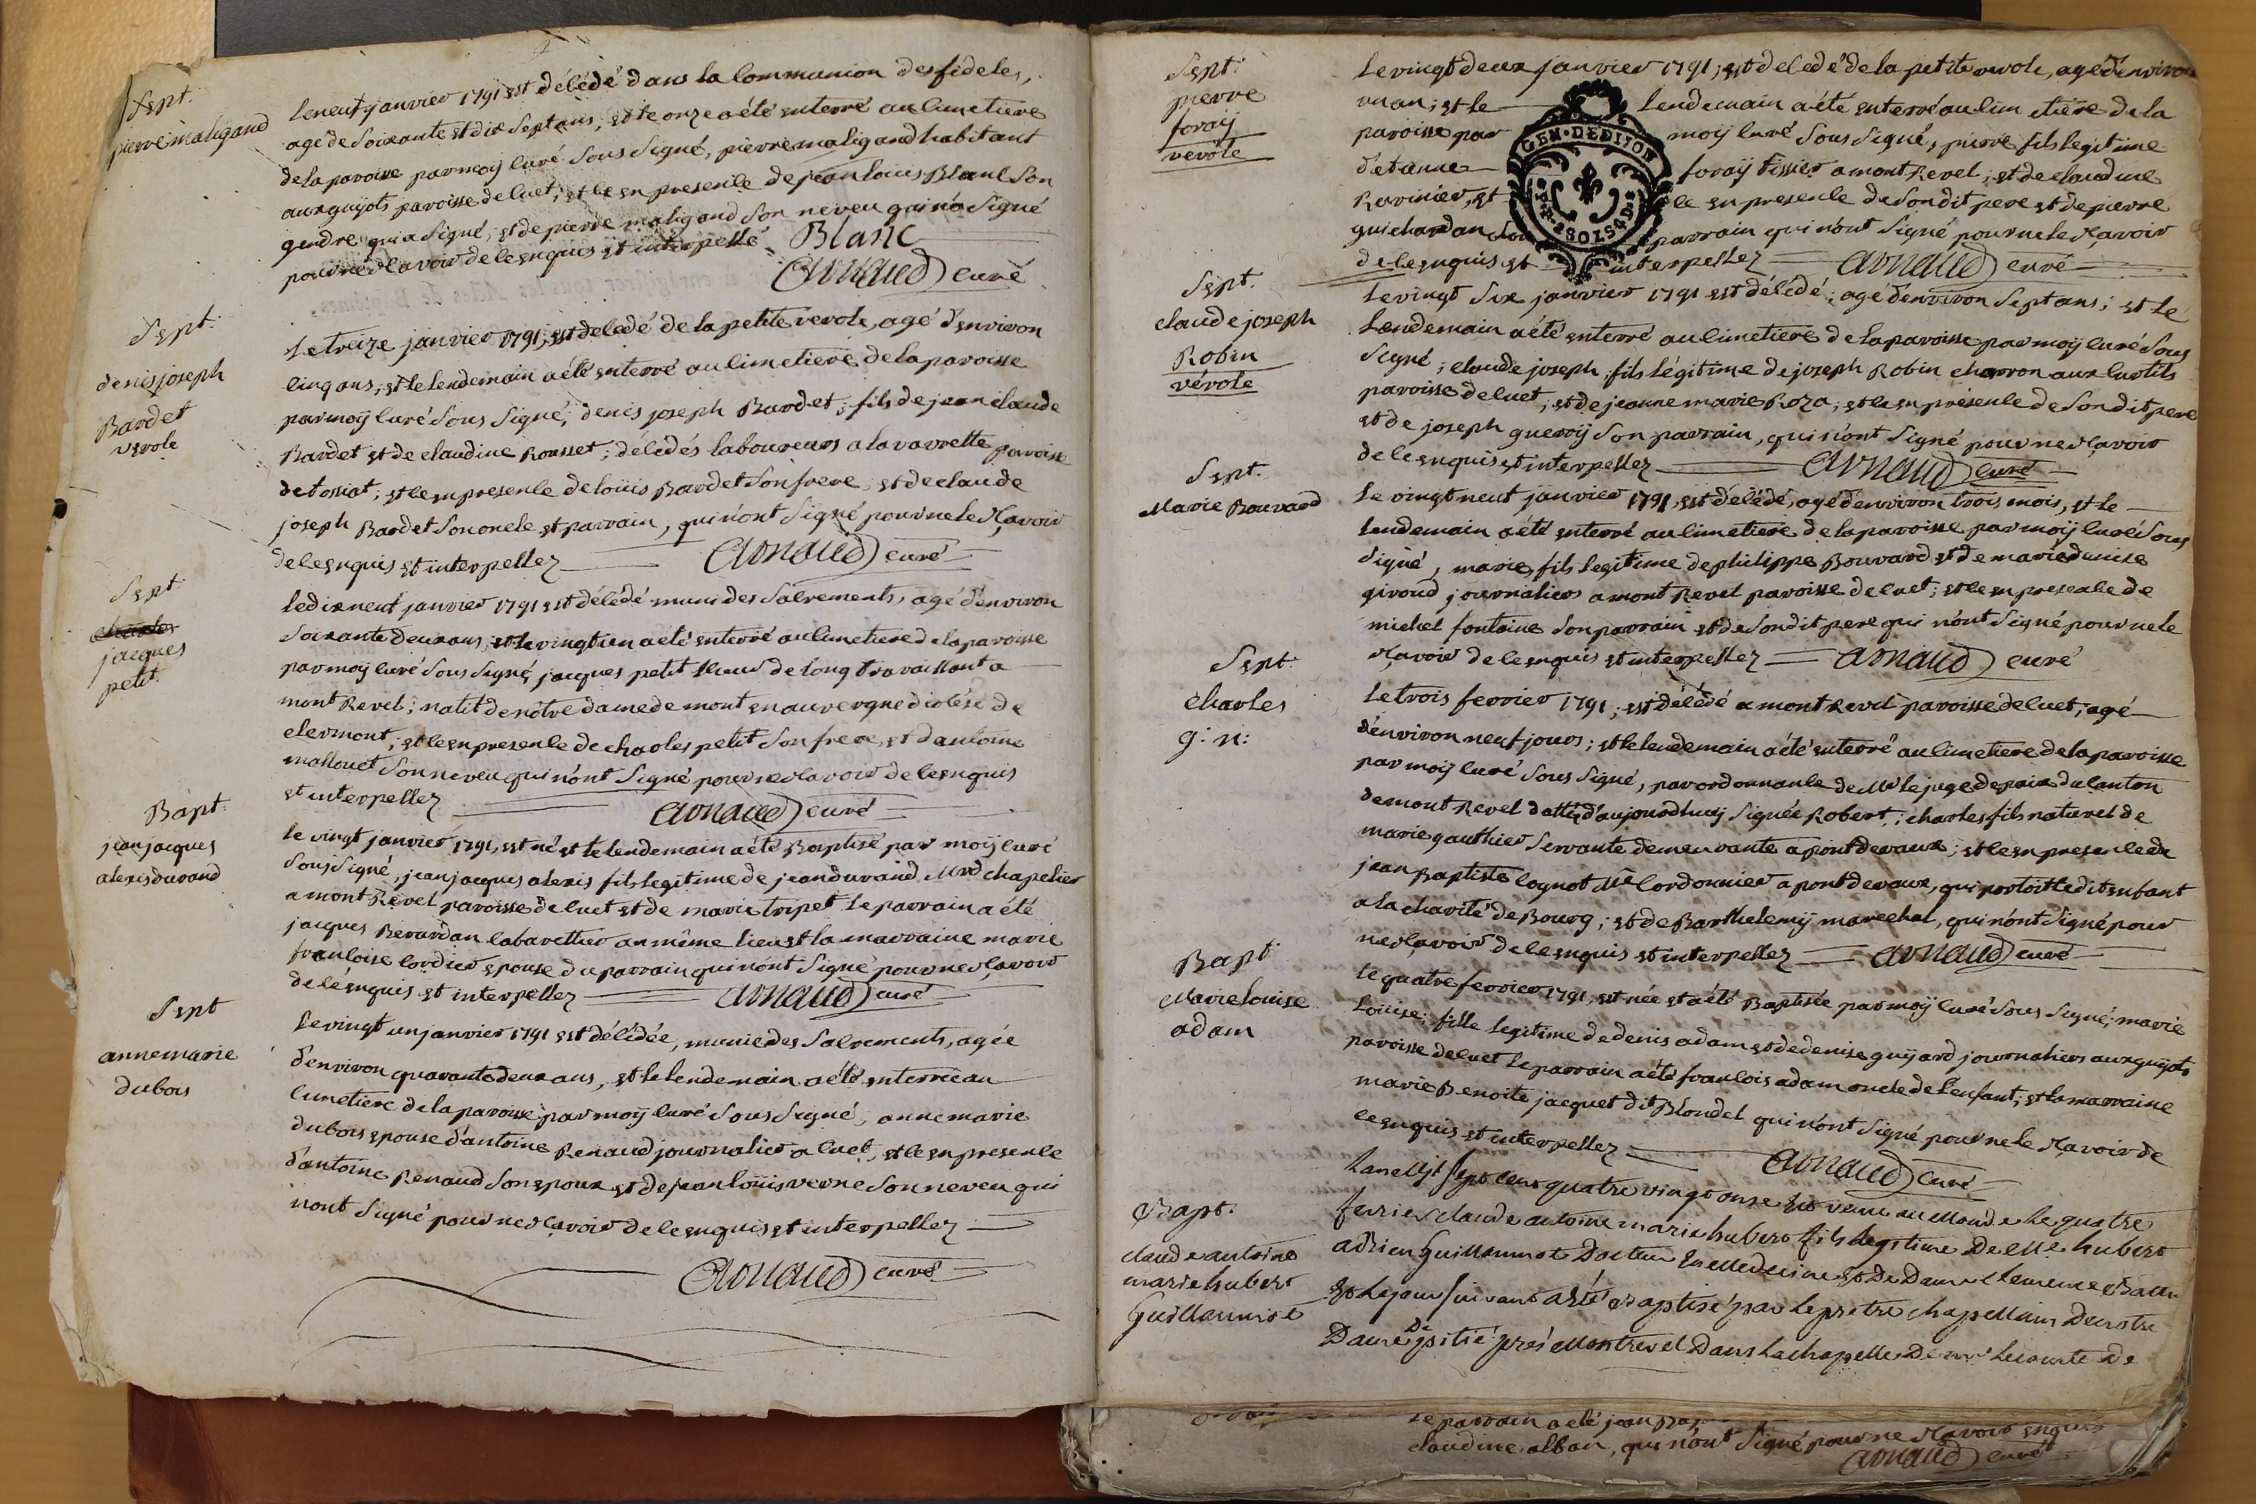 Sept:
pierre maligand
le neuf janvier 1791 est décédé dans la Communion des fideles,
agé de Soixante et dix Sept ans; et le onze a été enterré au cimetiere
de la paroisse par moÿ curé Sous Signé, pierre maligand habitant
aux guÿots paroisse de cuet; et ce en presence de jean louis Blanc Son
gendre qui a Signé; et de pierre maligand Son neveu qui n'a Signé
pour ne sçavoir de ce enquis et interpellé Blanc
Arnaud curé
Sept:
denis joseph
Bardet
verole
Le treize janvier 1791; est décédé de la petite verole, agé d'environ
cinq ans; et le lendemain a été enterré au cimetiere de la paroisse
par moÿ curé Sous Signé; denis joseph Bardet; fils de jean claude
Bardet et de claudine Rousset; décédés laboureurs a la varrette paroisse
de tossiat; et ce en presence de loüis Bardet Son frere; et de claude
joseph Bardet Son oncle et parrain, qui n'ont Signé pour ne le sçavoir
de ce enquis et interpellez Arnaud curé
Sept:
charles
jacques
petit
Le dix neuf janvier 1791 est décédé muni des Sacrements, agé d'environ
Soixante deux ans; et le vingt un a été enterré au cimetiere de la paroisse
par moÿ curé Sous Signé, jacques petit Scieur de long travaillant a
mont Revel; natif de nôtre dame de mont en auvergne diocése de
clermont; et ce en presence de charles petit Son frere, et d'antoine
mallouet Son neveu qui n'ont Signé pour ne sçavoir de ce enquis
et interpellez Arnaud curé
Bapt:
jean jacques
alexis durand
le vingt janvier 1791, est né et le lendemain a été Baptisé par moÿ curé
Sous Signé, jean jacques alexis fils legitime de jean durand Mrd chapelier
a mont Revel paroisse de cuet et de marie tripet le parrain a été
jacques Berardan cabarettier au même lieu et la marraine marie
francoise cordier epouse du parrain qui n'ont Signé pour ne sçavoir
de cé enquis et interpellez Arnaud curé
Sept
anne marie
dubois
Le vingt un janvier 1791 est décédée, munie des Sacrements, agée
d'environ quarante deux ans, et le lendemain a été enterrée au
cimetiere de la paroisse par moÿ curé Sous Signé, anne marie
dubois epouse d'antoine Renaud journalier a cuet, et ce en presence
d'antoine Renaud Son epoux et de jean loüis verne Son neveu qui
n'ont Signé pour ne sçavoir de ce enquis et interpellez
Arnaud curé
Sept:
pierre
foraÿ
verole
Le vingt deux janvier 1791; est décedé de la petite verole, agé d'environ
un an; et le lendemain a été enterré au cimetiere de la
paroisse par moÿ curé Sous Signé, pierre fils legitime
d'etienne foraÿ tissier a mont Revel; et de claudine
Ravinier, et ce en presence de Son dit pere et de pierre
guichardan Son parrain qui n'ont Signé pour ne le sçavoir
de ce enquis et interpellez Arnaud curé
GEN. DE DIJON
Sept.
claude joseph
Robin
vérole
Le vingt Six janvier 1791 est décédé; agé d'environ Sept ans; et le
Lendemain a été enterré au cimetiere de la paroisse par moÿ curé Sous
Signé; claude joseph fils légitime de joseph Robin charron aux curtils
paroisse de cuet, et de jeanne marie Roza; et ce en présence de Son dit pere
et de joseph guerrÿ Son parrain, qui n'ont Signé pour ne sçavoir
de ce enquis et interpellez Arnaud curé
Sept.
Marie Bouvard
Le vingt neuf janvier 1791, est décédé, agé d'environ trois mois, et le
lendemain a été enterré au cimetiere de la paroisse par moÿ curé Sous
Signé, marie fils legitime de philippe Bouvard et de marie denise
giroud, journaliers a mont Revel paroisse de cuet; et ce en presence de
michel fontaine Son parrain et de Son dit pere qui n'ont Signé pour ne le
sçavoir de ce enquis et interpellez Arnaud curé
Sept:
charles
g: n:
Le trois fevrier 1791; est décédé a mont Revel paroisse de cuet, agé
d'environ neuf jours; et le lendemain a été enterré au cimetiere de la paroisse
par moÿ curé Sous Signé, par ordonnance de Mr le juge de paix du canton
de mont Revel dattée d'aujourdhuÿ Signée Robert; charles fils naturel de
marie gauthier Servante demeurante a pont de vaux; et ce en presence de
jean Baptiste cognot Mtre Cordonnier a pont de vaux, qui portoit le dit enfant
a la charité de Bourg; et de Barthelemÿ marechal, qui n'ont Signé pour
ne sçavoir de ce enquis et interpellez Arnaud curé
Bapt:
Marie louise
adam
Le quatre fevrier 1791, est née et a été Baptisée par moÿ curé Sous Signé; marie
Loüise; fille legitime de denis adam et de denise guÿard journaliers aux guÿots
paroisse de cuet le parrain a été francois adam oncle de l'enfant; et la marraine
marie Benoite jacquet dit Blondel qui n'ont Signé pour ne le sçavoir de
ce enquis et interpellez Arnaud Curé
Bapt:
claude antoine
marie hubert
Guillaumot
Lan mil sept cent quatre vingt onze est venu au Monde le quatre
fevrier claude antoine marie hubert fils legitime de Mr hubert
adrien Guillaumot Docteur en Medecine et De Dame Clemence
Et le jour suivant a été Baptisé par le pretre chapellain De notre
Dame De pitié près Montrevel Dans la chapelle De mr le comte de
le parrain a été jean
claudine alban, qui n'ont Signé pour ne sçavoir enquis
Arnaud curé